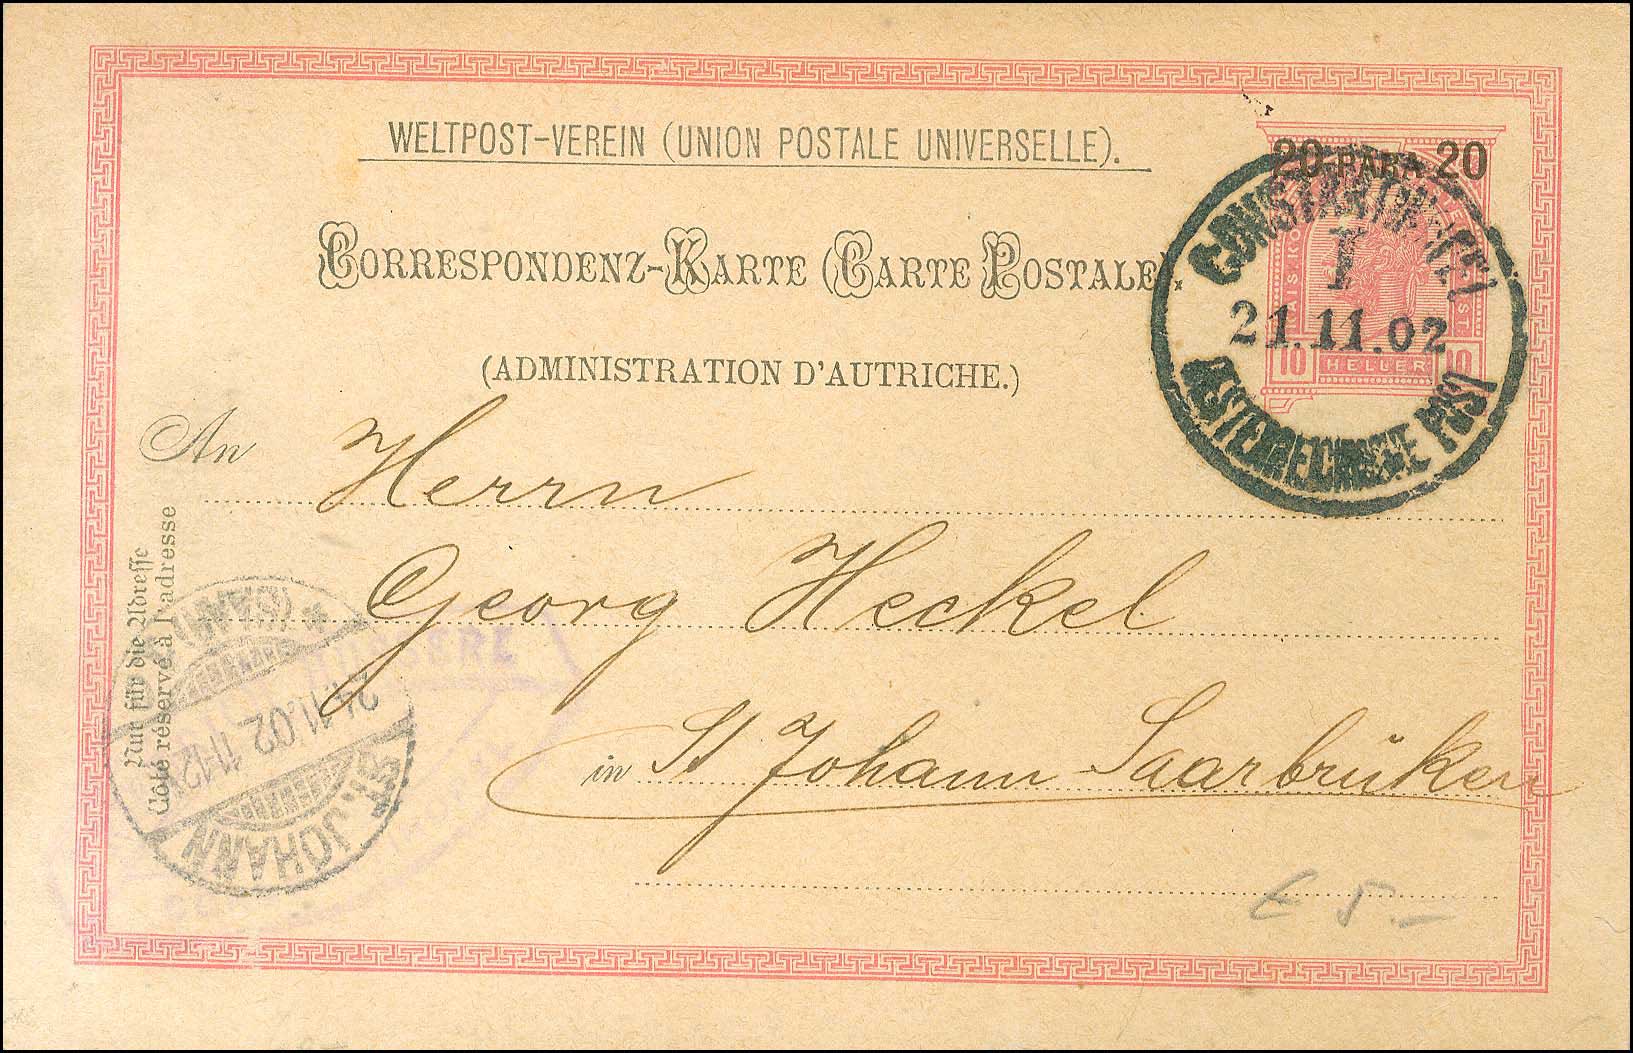 WELTPOST-VEREIN (UNION POSTALE UNIVERSELLE).
20 PARA 20
CORRESPONDENZ-KARTE (CARTE POSTALE).
(ADMINISTRATION D'AUTRICHE.)
CONSTANTINOPEL
I
21.11.02
OESTERREICHISCHE POST
10 HELLER 10
An Herrn
Georg Heckel
in St Johann Saarbrüken
Nur für die Adresse
Côté réservé à l'adresse
ST. JOHANN
24.11.02. 11-12
(SAAR)
€ 5.-